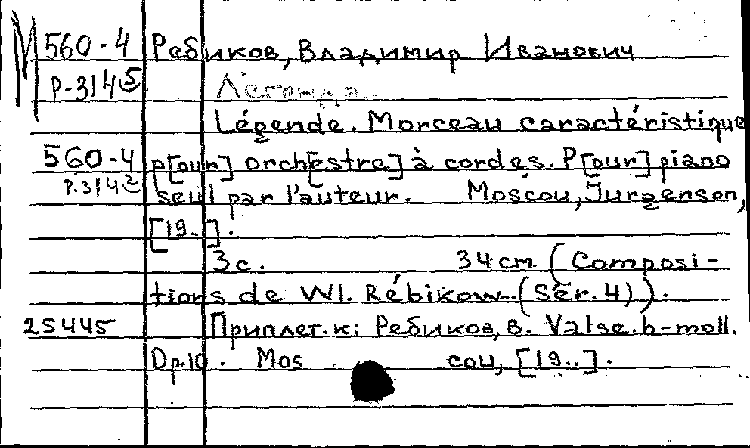 М 560-4 Ребиков, Владимир Иванович
Р-3145 Легенда.
Légende. Morceau caractéristique
560-4 p[our] orchestre] à cordes. P[our] piano
Р.3142 seul par l'auteur. Moscou, Jurgenson,
[19..].
3 с. 34 cm (Composi-
tions de Wl. Rébikow. (Sér. 4)).
25445 Приплет. к: Ребиков, В. Valse. h-moll.
Op.10. Moscou, [19..].